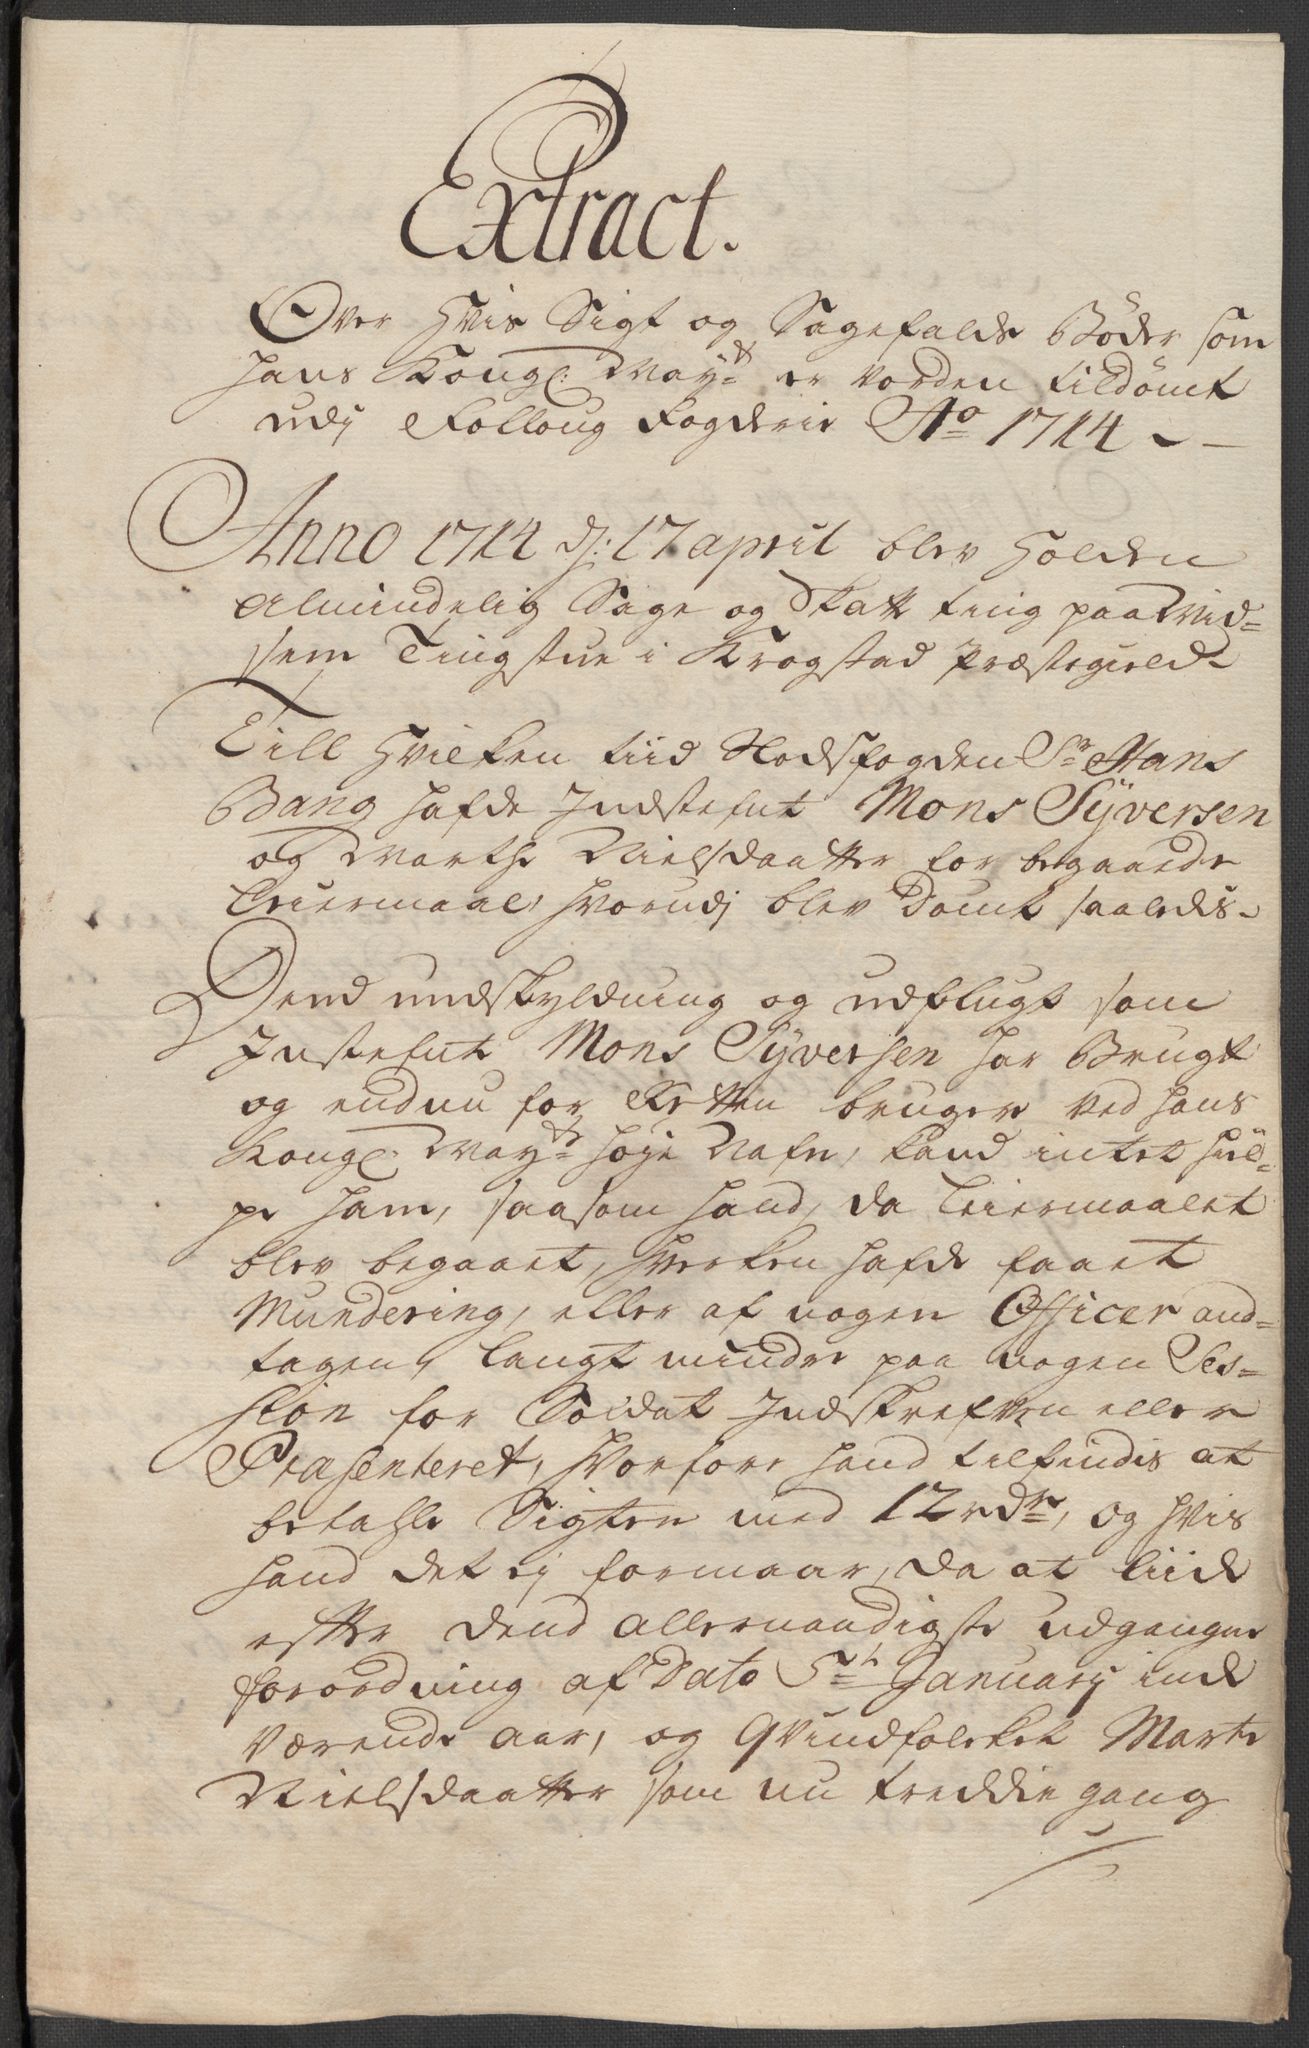 Extract.
Over Hvis Sigt og Sagefalds Bøder som
Hans Kongl: May:ts er vorden tildømt
udj Folloug Fogderie Ao 1714
Anno 1714 d: 17 april blev Holden
Almindelig Sage og Skatte ting paa Wid=
sem Tingstue i Krogstad Præstegield
Till Hvilken tiid Rodsfogden Sr Hans
Bang hafde Indstefnt Mons Syversen
og Marthe Nielsdaatter for begaaede
Leiermaal, hvorudj blev Dømt saaledis
Dend undskyldning og udflugt som
Instefnte Mons Syversen har Brugt
og endnu for Retten bruger ved hans
Kongl: May:ts høje Nafn, kand intet hiel=
pe ham, saasom hand, da Leiermaalet
blev begaaet, hverken hafde faaet
Mundering, eller af nogen Officer and=
tagen, langt mindre paa nogen Ses=
sion for Soldat Indskrefven eller
Præsenteret, hvorfore hand tilfindis at
betahle Sigten med 12 rdr, og hvis
hand det ej formaar, da at liide
efter dend allernaadigste udgangne
forordning af Dato 5te January inde
værende aar, og Qvindfolcket Marte
Nielsdaatter som nu treddie gang